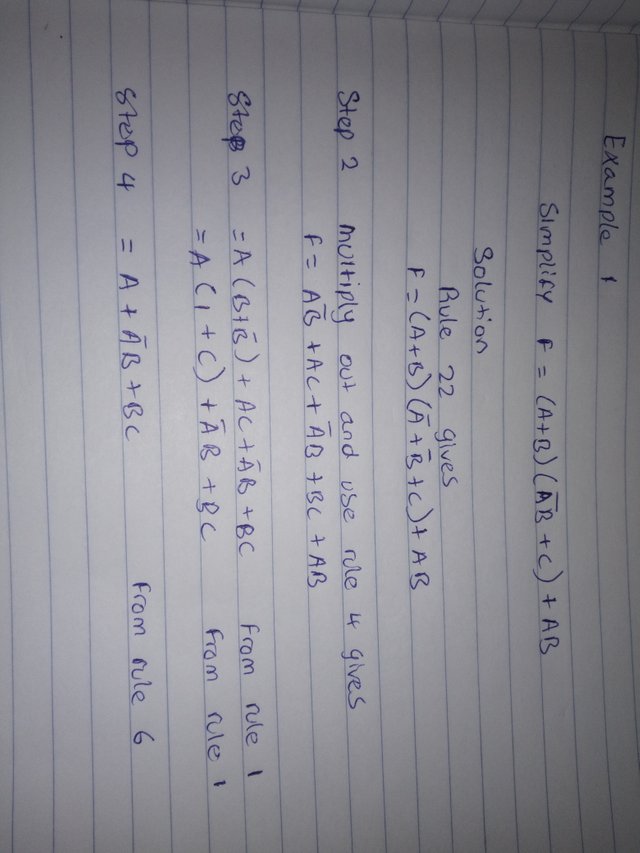 Example 1
Simplify F = (A+B)(A̅B̅ + C) + AB
Solution
Rule 22 gives
F = (A+B)(A̅+B̅+C) + AB
Step 2 multiply out and use rule 4 gives
F = AB̅ + AC + A̅B + BC + AB
Step 3 = A(B+B̅) + AC + A̅B + BC From rule 1
= A(1 + C) + A̅B + BC From rule 1
Step 4 = A + A̅B + BC From rule 6